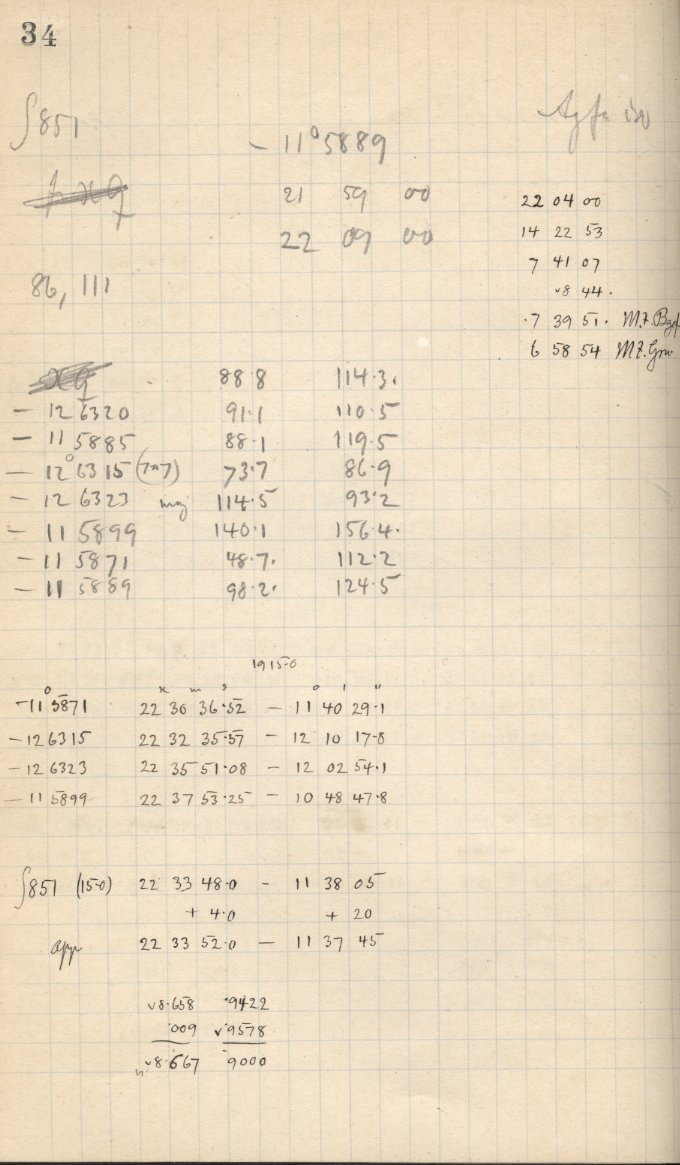 34
∫851
- 11° 5889
Agfa iso
21 59 00
22 09 00
86, 111
22 04 00
14 22 53
7 41 07
8 44.
.7 39 51. M.T.
6 58 54 M.T.
88.8 114.3.
- 12 6320 91.1 110.5
- 11 5885 88.1 119.5
- 12° 6315 (7m7) 73.7 86.9
- 12 6323 114.5 93.2
- 11 5899 140.1 156.4.
- 11 5871 48.7. 112.2
- 11 5889 98.2. 124.5
1915.0
h m s ° ' "
-11° 5871 22 30 36.52 - 11 40 29.1
- 12 6315 22 32 35.57 - 12 10 17.8
- 12 6323 22 35 51.08 - 12 02 54.1
- 11 5899 22 37 53.25 - 10 48 47.8
∫851 (15.0) 22 33 48.0 - 11 38 05
+ 4.0 + 20
app 22 33 52.0 - 11 37 45
8.658 .9422
.009 .9578
8.667 9000